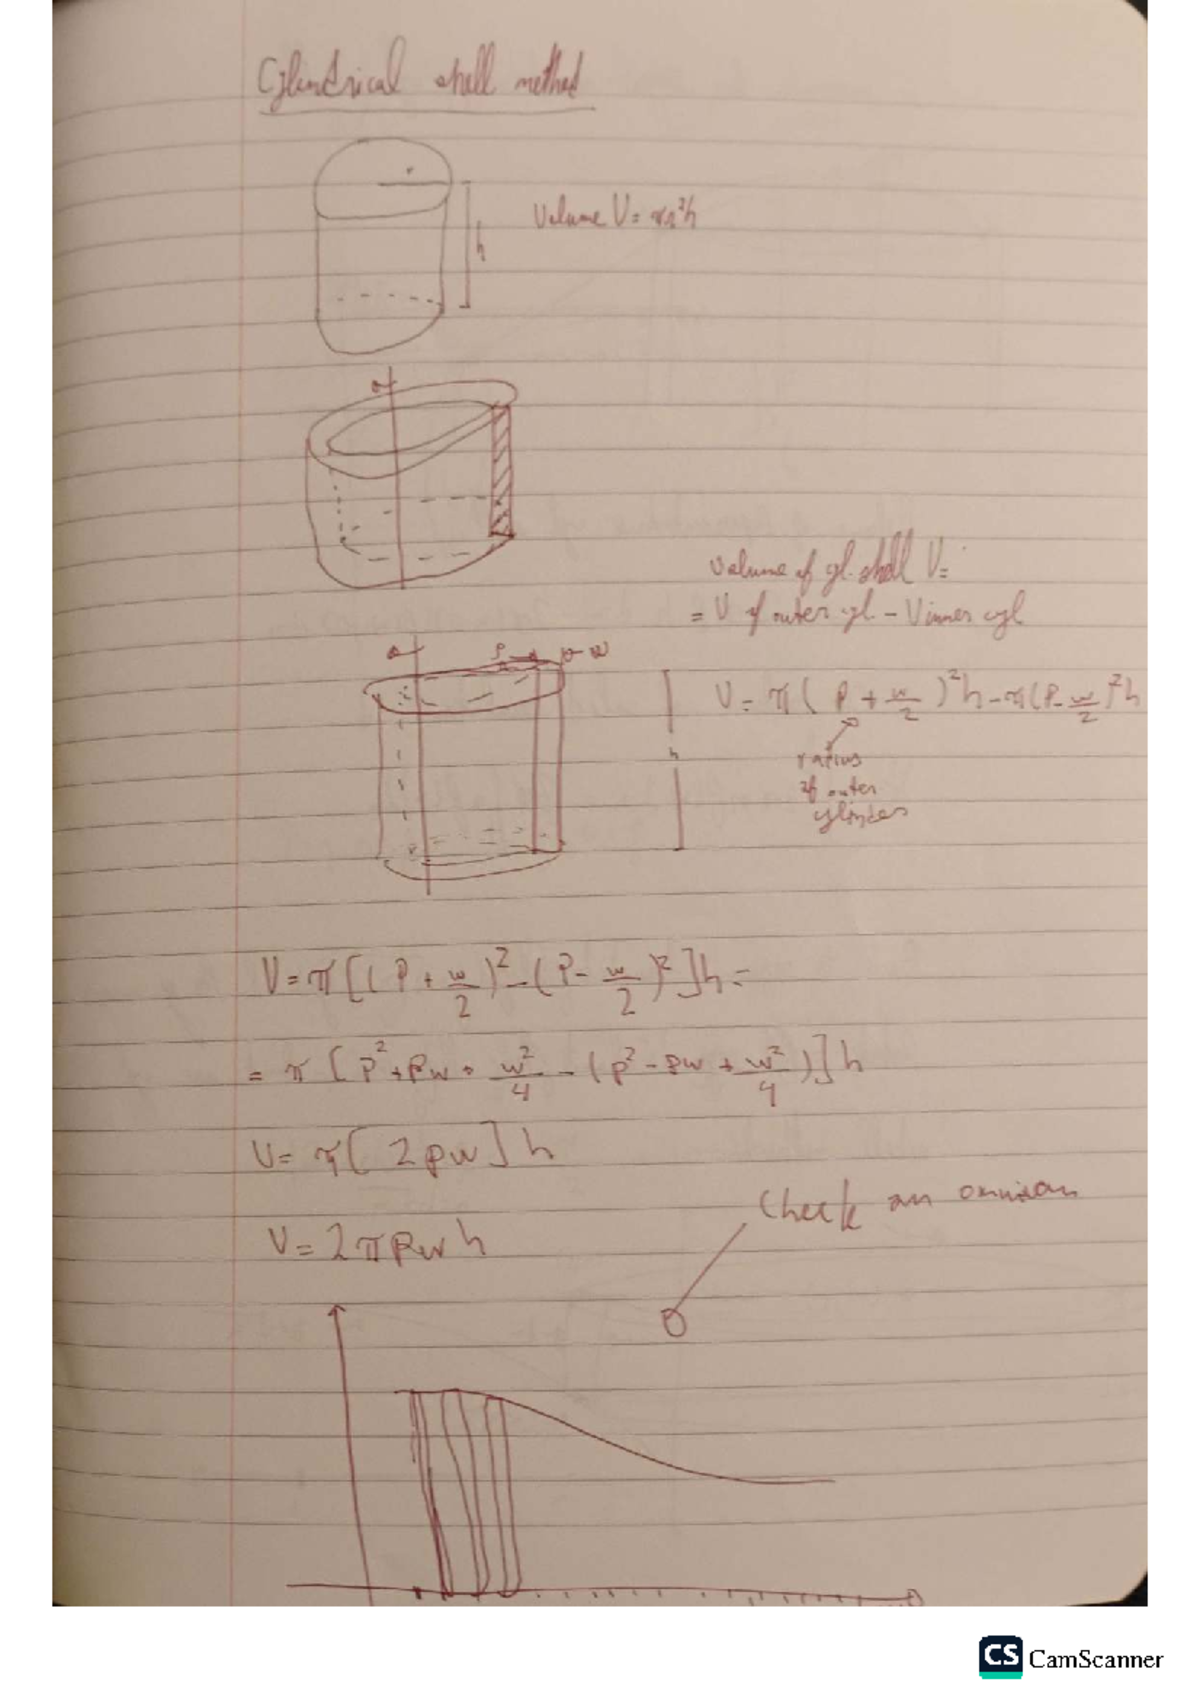 Cylindrical shell method
r
h
Volume V = πr²h
Volume of cyl. shell V =
= V of outer cyl. - V inner cyl
P
w
h
V = π ( P + w/2 )² h - π ( P - w/2 )² h
radius
of outer
cylinder
V = π [ ( P + w/2 )² - ( P - w/2 )² ] h =
= π [ P² + Pw + w²/4 - ( P² - Pw + w²/4 ) ] h
V = π [ 2 P w ] h
V = 2 π P w h
Check an omission
CS CamScanner